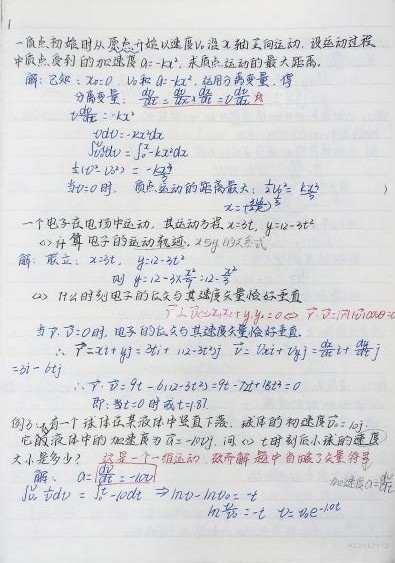 一质点初始时从原点开始以速度v₀沿x轴正向运动，设运动过程
中质点受到的加速度a=-kx²，求质点运动的最大距离。
解：已知：x₀=0 v₀和a=-kx²，运用分离变量，得
分离变量：dv/dt=dv/dx·dx/dt=v dv/dx
v dv/dx=-kx²
vdv=-kx²dx
∫vdv=∫-kx²dx
½(v²-v₀²)=-kx³/3
当v=0时，质点运动的距离最大：½v₀²=kx³/3
一个电子在电场中运动，其运动方程x=3t，y=12-3t²
(1)计算电子的运动轨迹。x与y的关系式
解：联立：x=3t，y=12-3t²
则y=12-3×x²/9=12-x²/3
(2)什么时刻电子的位矢与其速度矢量恰好垂直
当r·v=0时，电子的位矢与其速度矢量恰好垂直
∴r=xi+yj=3ti+(12-3t²)j v=vxi+vyj=dx/dt i+dy/dt j
=3i-6tj
∴r·v=9t-6(12-3t²)t=9t-72t+18t³=0
即：当t=0时或t=1.87
例6：有一个球体在某液体中竖直下落，球体的初速度v₀=10j
它的液体中的加速度为a=-10vj，问(1)t时刻后小球的速度
大小是多少？这是一个一维运动，故而解题中省略了矢量符号
解：a=dv/dt=-10v 加速度a=dv/dt
∫1/v dv=∫-10dt ⇒lnv-lnv₀=-t
ln v/v₀=-t v=v₀e^-10t